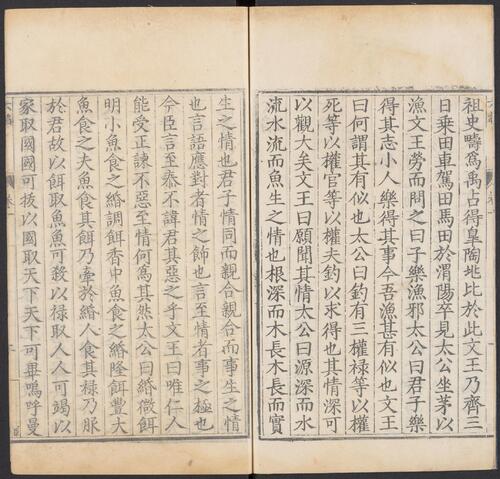 祖史疇爲禹占得皐陶兆比於此文王乃齊三
日乗田車駕田馬田於渭陽卒見太公坐茅以
漁文王勞而問之曰子樂漁邪太公曰君子樂
得其志小人樂得其事今吾漁甚有似也文王
曰何謂其有似也太公曰釣有三權禄等以權
死等以權官等以權夫釣以求得也其情深可
以觀大矣文王曰願聞其情太公曰源深而水
流水流而魚生之情也根深而木長木長而實
生之情也君子情同而親合親合而事生之情
也言語應對者情之飾也言至情者事之極也
今臣言至不諱君其惡之乎文王曰唯仁人
能受正諫不惡至情何爲其然太公曰緡微餌
明小魚食之緡調餌香中魚食之緡隆餌豐大
魚食之夫魚食其餌乃牽於緡人食其禄乃服
於君故以餌取魚魚可殺以禄取人人可竭以
家取國國可拔以國取天下天下可畢嗚呼曼